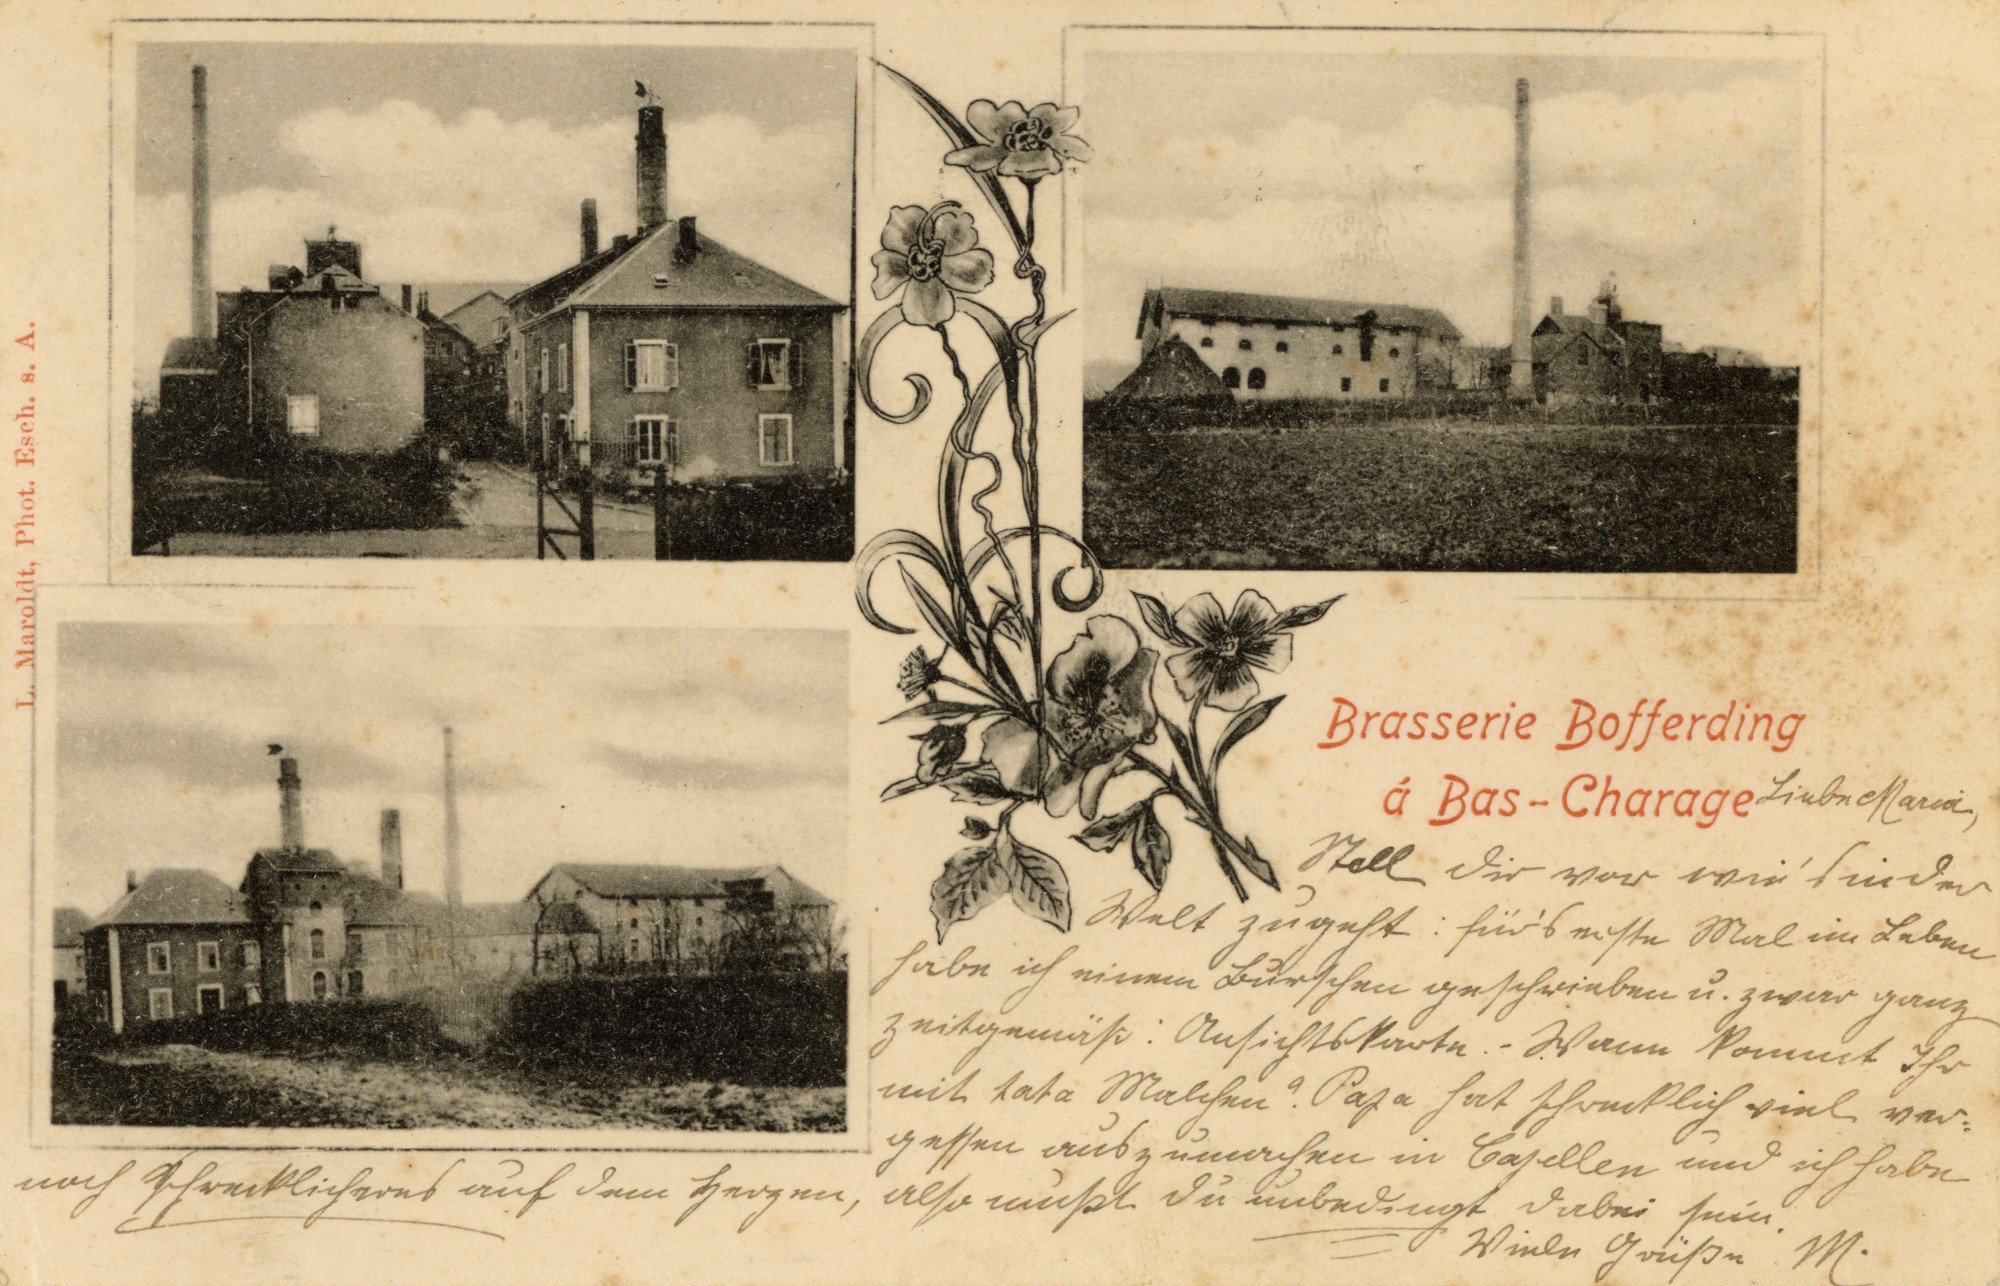 L. Maroldt, Phot. Esch. s. A.
Brasserie Bofferding
á Bas-Charage
Liebe Maria,
Stell dir vor wie's in der
Welt zugeht: für's erste Mal im Leben
habe ich einem Burschen geschrieben u. zwar ganz
zeitgemäß: Ansichtskarte. - Wann kommt Ihr
mit tata Malchen? Papa hat schrecklich viel ver-
gessen auszumachen in Capellen und ich habe
noch Schrecklicheres auf dem Herzen, also mußt du unbedingt dabei sein.
Viele Grüße M.